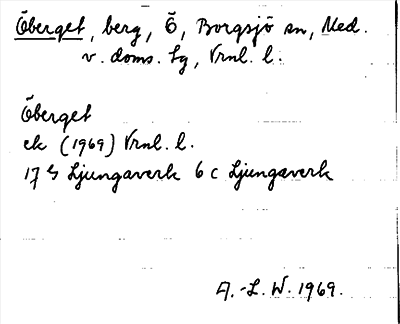 Öberget, berg, Ö, Borgsjö sn, Med.
v. doms. tg, Vrnl. l.
Öberget
ek (1969) Vrnl. l.
17 G Ljungaverk 6 c Ljungaverk
A.-L. W. 1969.